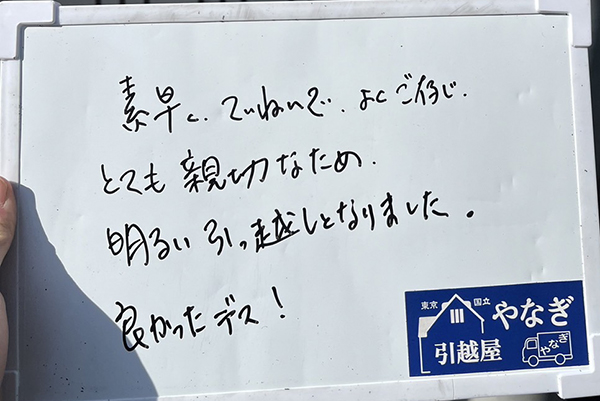 素早く、ていねいで、よくご存じ、
とても親切なため、
明るい引っ越しとなりました。
良かったデス！
東京 国立 やなぎ
引越屋 やなぎ